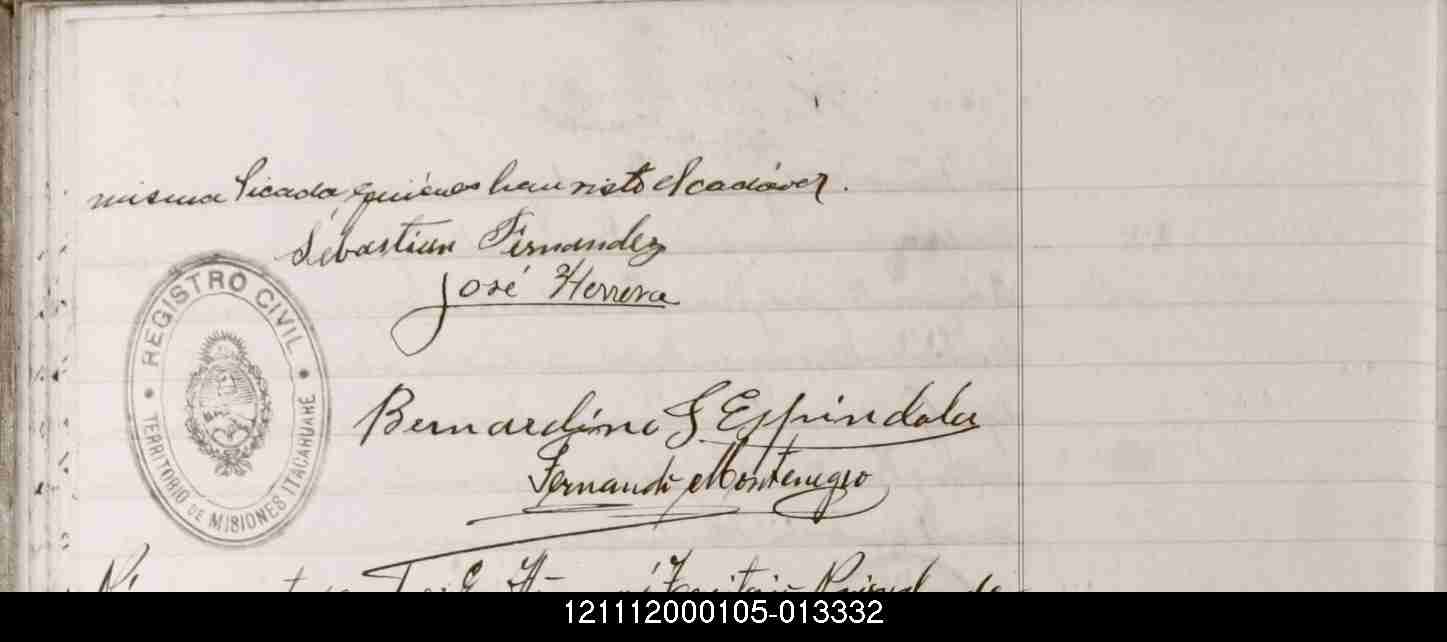 misma Picada, quiénes han visto el cadáver.
Sébastian Fernandez
José Herrera
REGISTRO CIVIL
TERRITORIO DE MISIONES ITACAHUARÉ
Bernardino G. Espindola
Fernando Montenegro
121112000105-013332